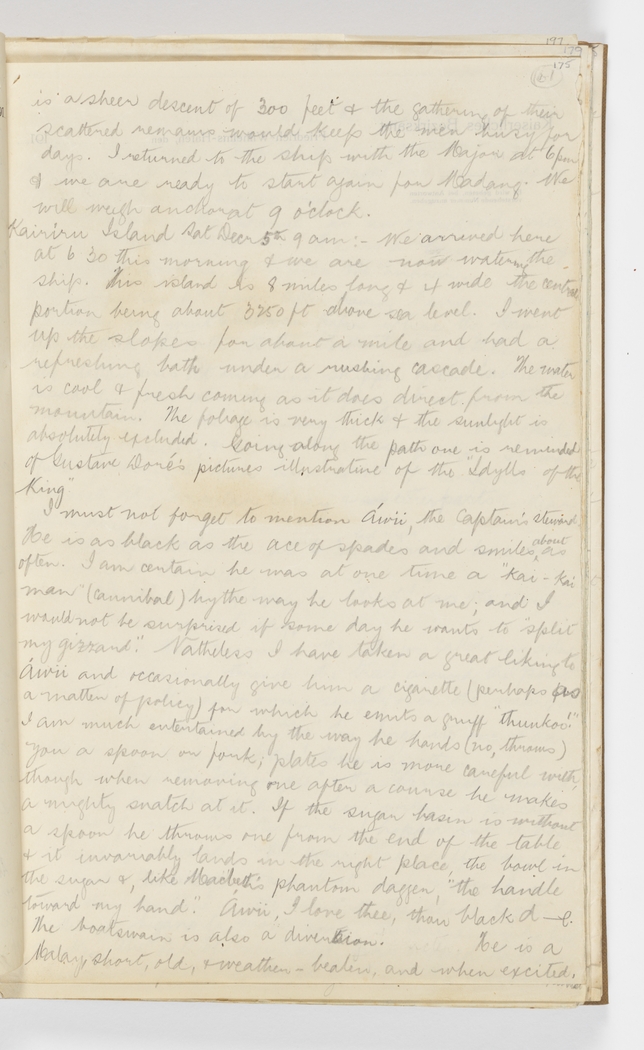 197
179
175
161
is a sheer descent of 300 feet & the gathering of their
scattered remains would keep the men busy for
days. I returned to the ship with the Major at 6pm
& we are ready to start again for Madang. We
will weigh anchor at 9 o'clock.
Kairiru Island Sat Decr 5th 9 am:- We arrived here
at 6 30 this morning & we are now watering the
ship. This island is 8 miles long & 4 wide the central
portion being about 3250 ft above sea level. I went
up the slopes for about a mile and had a
refreshing bath under a rushing cascade. The water
is cool & fresh coming as it does direct from the
mountain. The foliage is very thick & the sunlight is
absolutely excluded. Going along the path one is reminded
of Gustave Doré's pictures illustrative of the "Idylls of the
King"
I must not forget to mention Áwii, the Captain's steward.
He is as black as the ace of spades and smiles about as
often. I am certain he was at one time a "kai-kai
man" (cannibal) by the way he looks at me; and I
would not be surprised if some day he wants to "split
my gizzard". Natheless I have taken a great liking to
Áwii and occasionally give him a cigarette (perhaps as
a matter of policy) for which he emits a gruff "thunkoo!"
I am much entertained by the way he hands (no, throws)
you a spoon or fork; plates he is more careful with
though when removing one after a course he makes
a mighty snatch at it. If the sugar basin is without
a spoon he throws one from the end of the table
& it invariably lands in the right place, the bowl in
the sugar &, like Macbeth's phantom dagger, "the handle
toward my hand". Áwii, I love thee, thou black d—l.
The boatswain is also a diversion. He is a
Malay, short, old, & weather-beaten, and when excited,